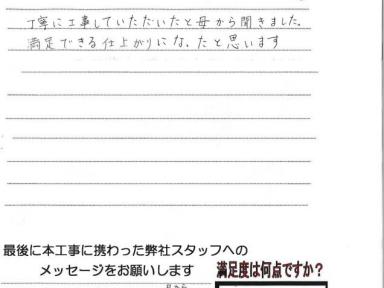 丁寧に工事していただいたと母から聞きました。
満足できる仕上がりになったと思います
最後に本工事に携わった弊社スタッフへの
メッセージをお願いします
満足度は何点ですか?